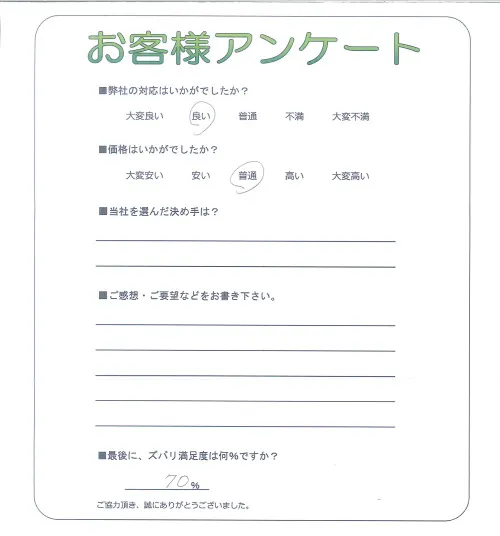 お客様アンケート
■弊社の対応はいかがでしたか？
大変良い 良い 普通 不満 大変不満
■価格はいかがでしたか？
大変安い 安い 普通 高い 大変高い
■当社を選んだ決め手は？
■ご感想・ご要望などをお書き下さい。
■最後に、ズバリ満足度は何％ですか？
70％
ご協力頂き、誠にありがとうございました。